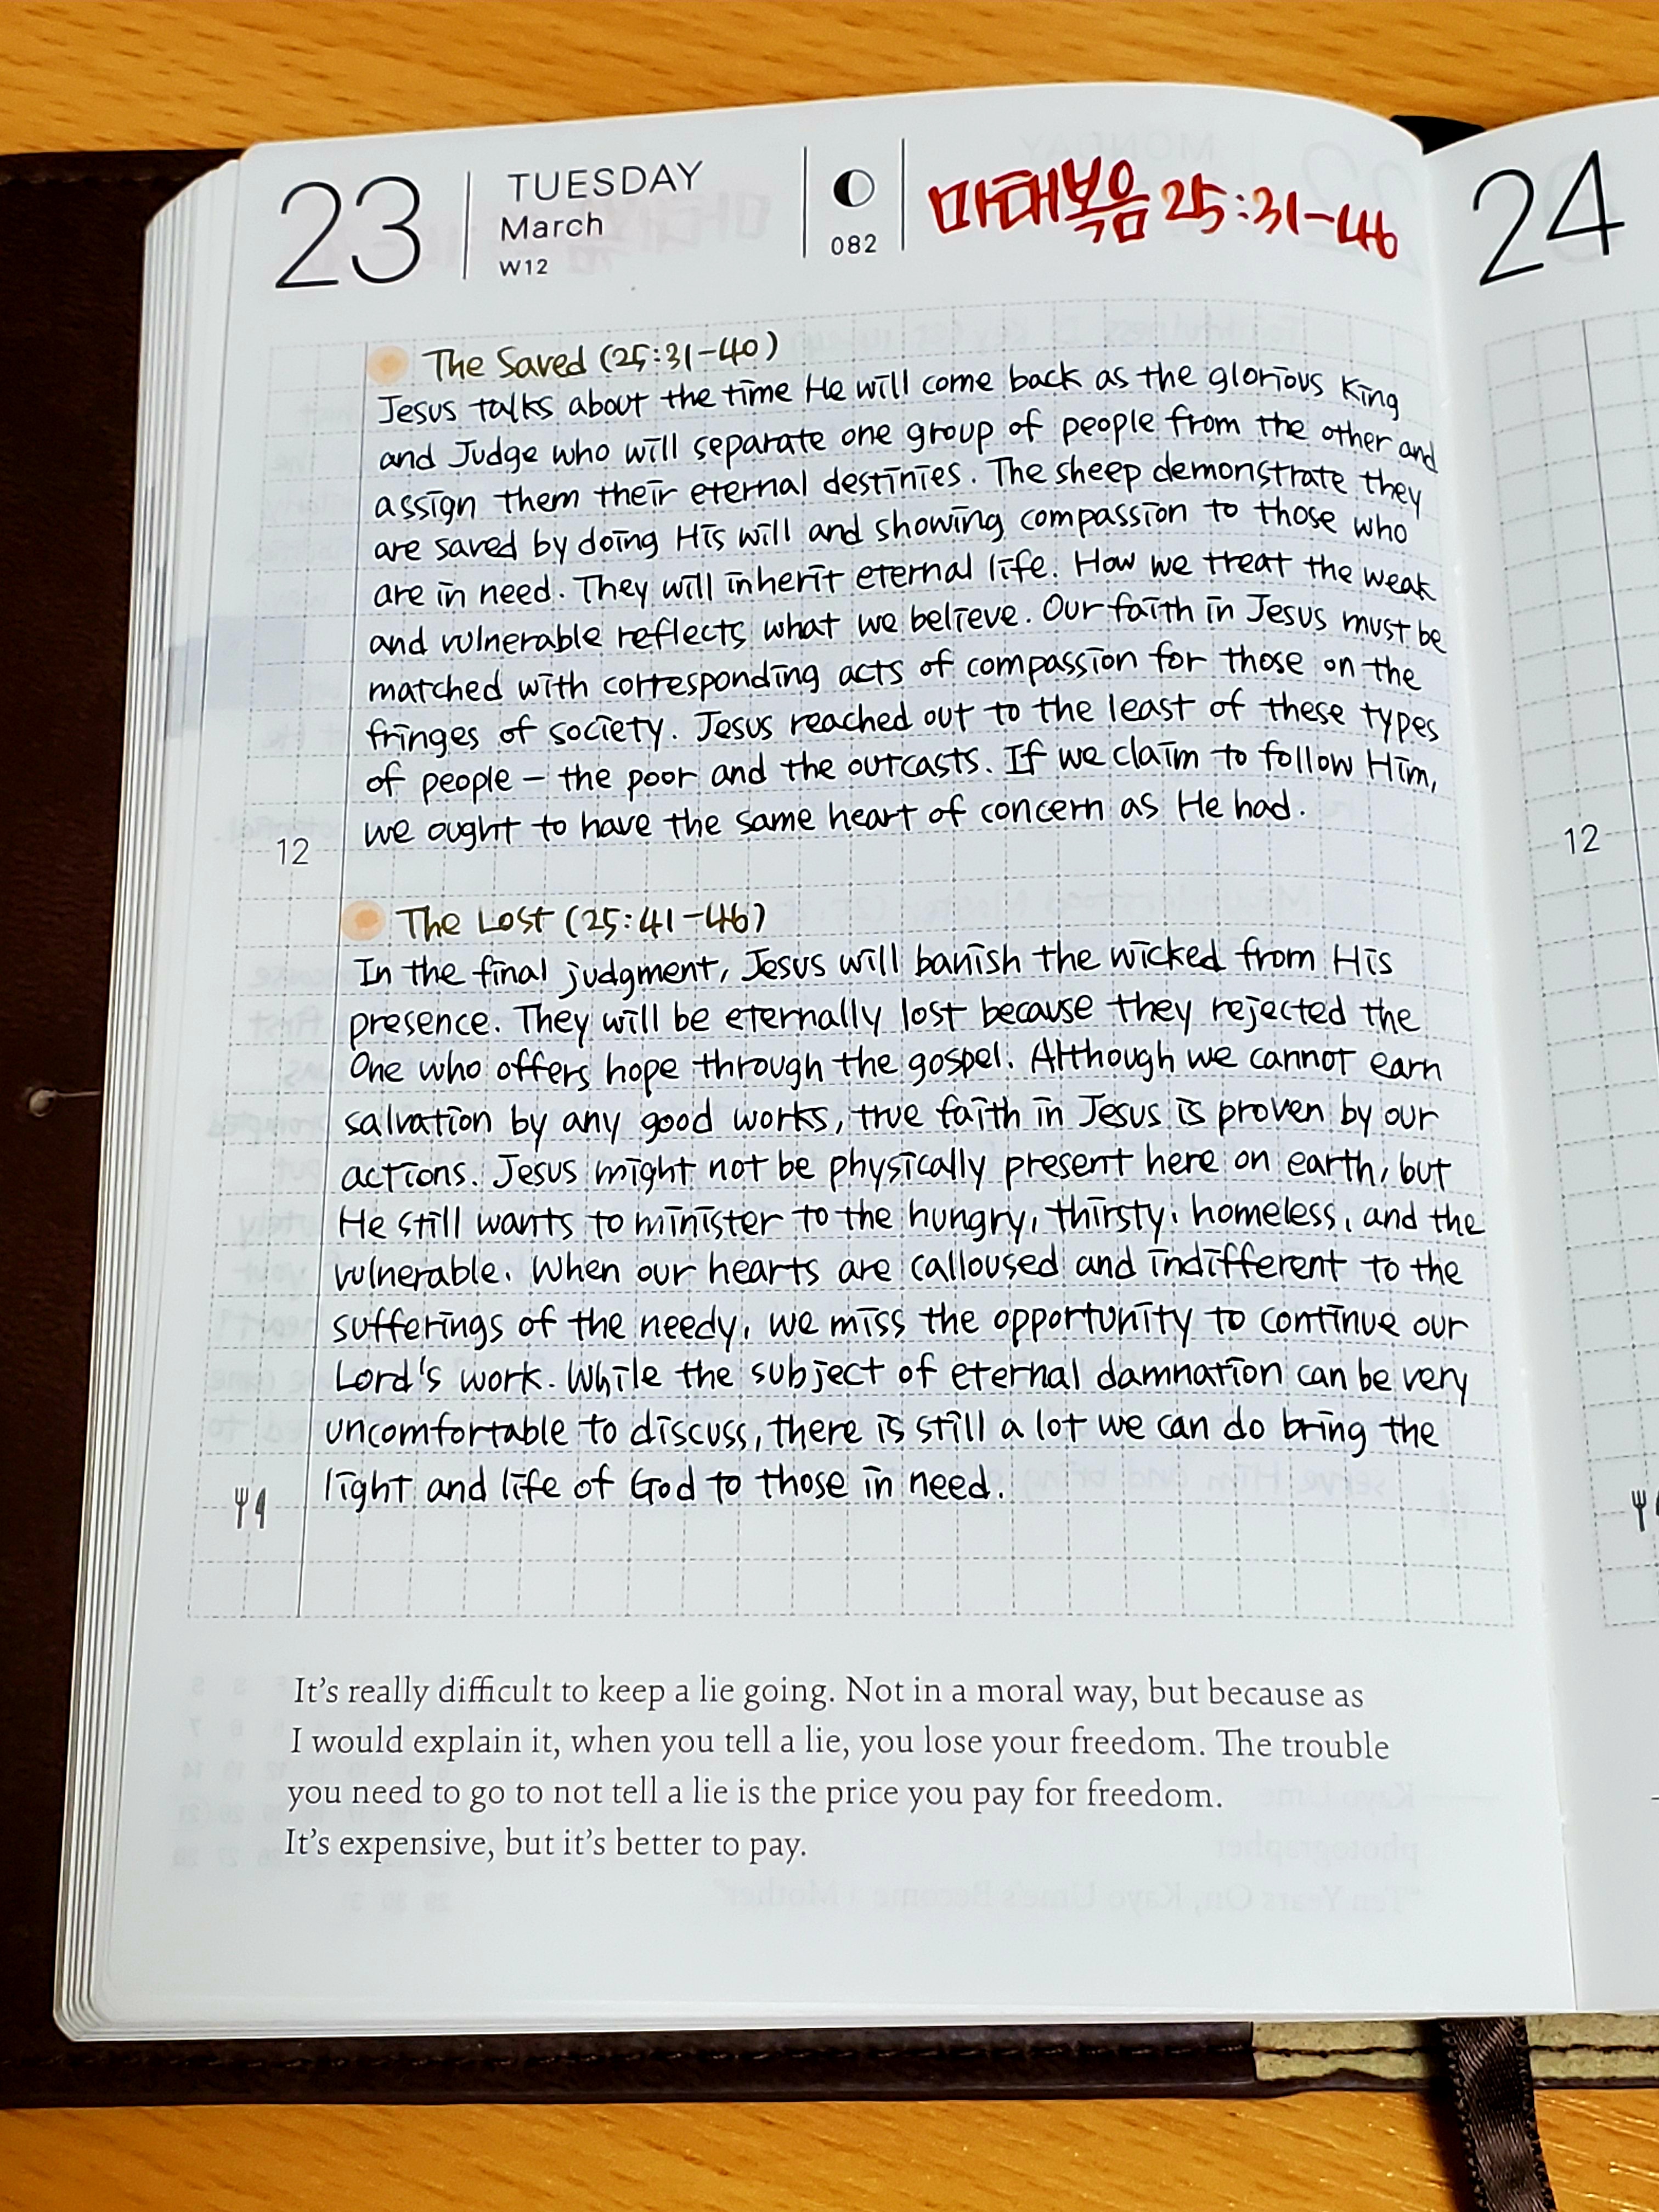 23
TUESDAY
March
W12
082
마태복음 25:31-46
24
The Saved (25:31-40)
Jesus talks about the time He will come back as the glorious King
and Judge who will separate one group of people from the other and
assign them their eternal destinies. The sheep demonstrate they
are saved by doing His will and showing compassion to those who
are in need. They will inherit eternal life. How we treat the weak
and vulnerable reflects what we believe. Our faith in Jesus must be
matched with corresponding acts of compassion for those on the
fringes of society. Jesus reached out to the least of these types
of people – the poor and the outcasts. If we claim to follow Him,
we ought to have the same heart of concern as He had.
12
12
The Lost (25:41-46)
In the final judgment, Jesus will banish the wicked from His
presence. They will be eternally lost because they rejected the
One who offers hope through the gospel. Although we cannot earn
salvation by any good works, true faith in Jesus is proven by our
actions. Jesus might not be physically present here on earth, but
He still wants to minister to the hungry, thirsty, homeless, and the
vulnerable. When our hearts are calloused and indifferent to the
sufferings of the needy, we miss the opportunity to continue our
Lord's work. While the subject of eternal damnation can be very
uncomfortable to discuss, there is still a lot we can do bring the
light and life of God to those in need.
It's really difficult to keep a lie going. Not in a moral way, but because as
I would explain it, when you tell a lie, you lose your freedom. The trouble
you need to go to not tell a lie is the price you pay for freedom.
It's expensive, but it's better to pay.